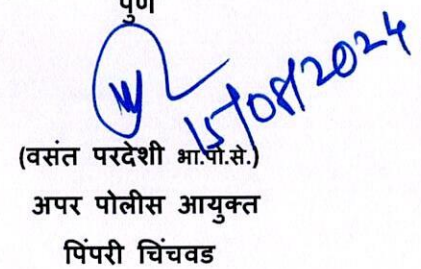 पुणे
15/08/2024
(वसंत परदेशी भा.पो.से.)
अपर पोलीस आयुक्त
पिंपरी चिंचवड